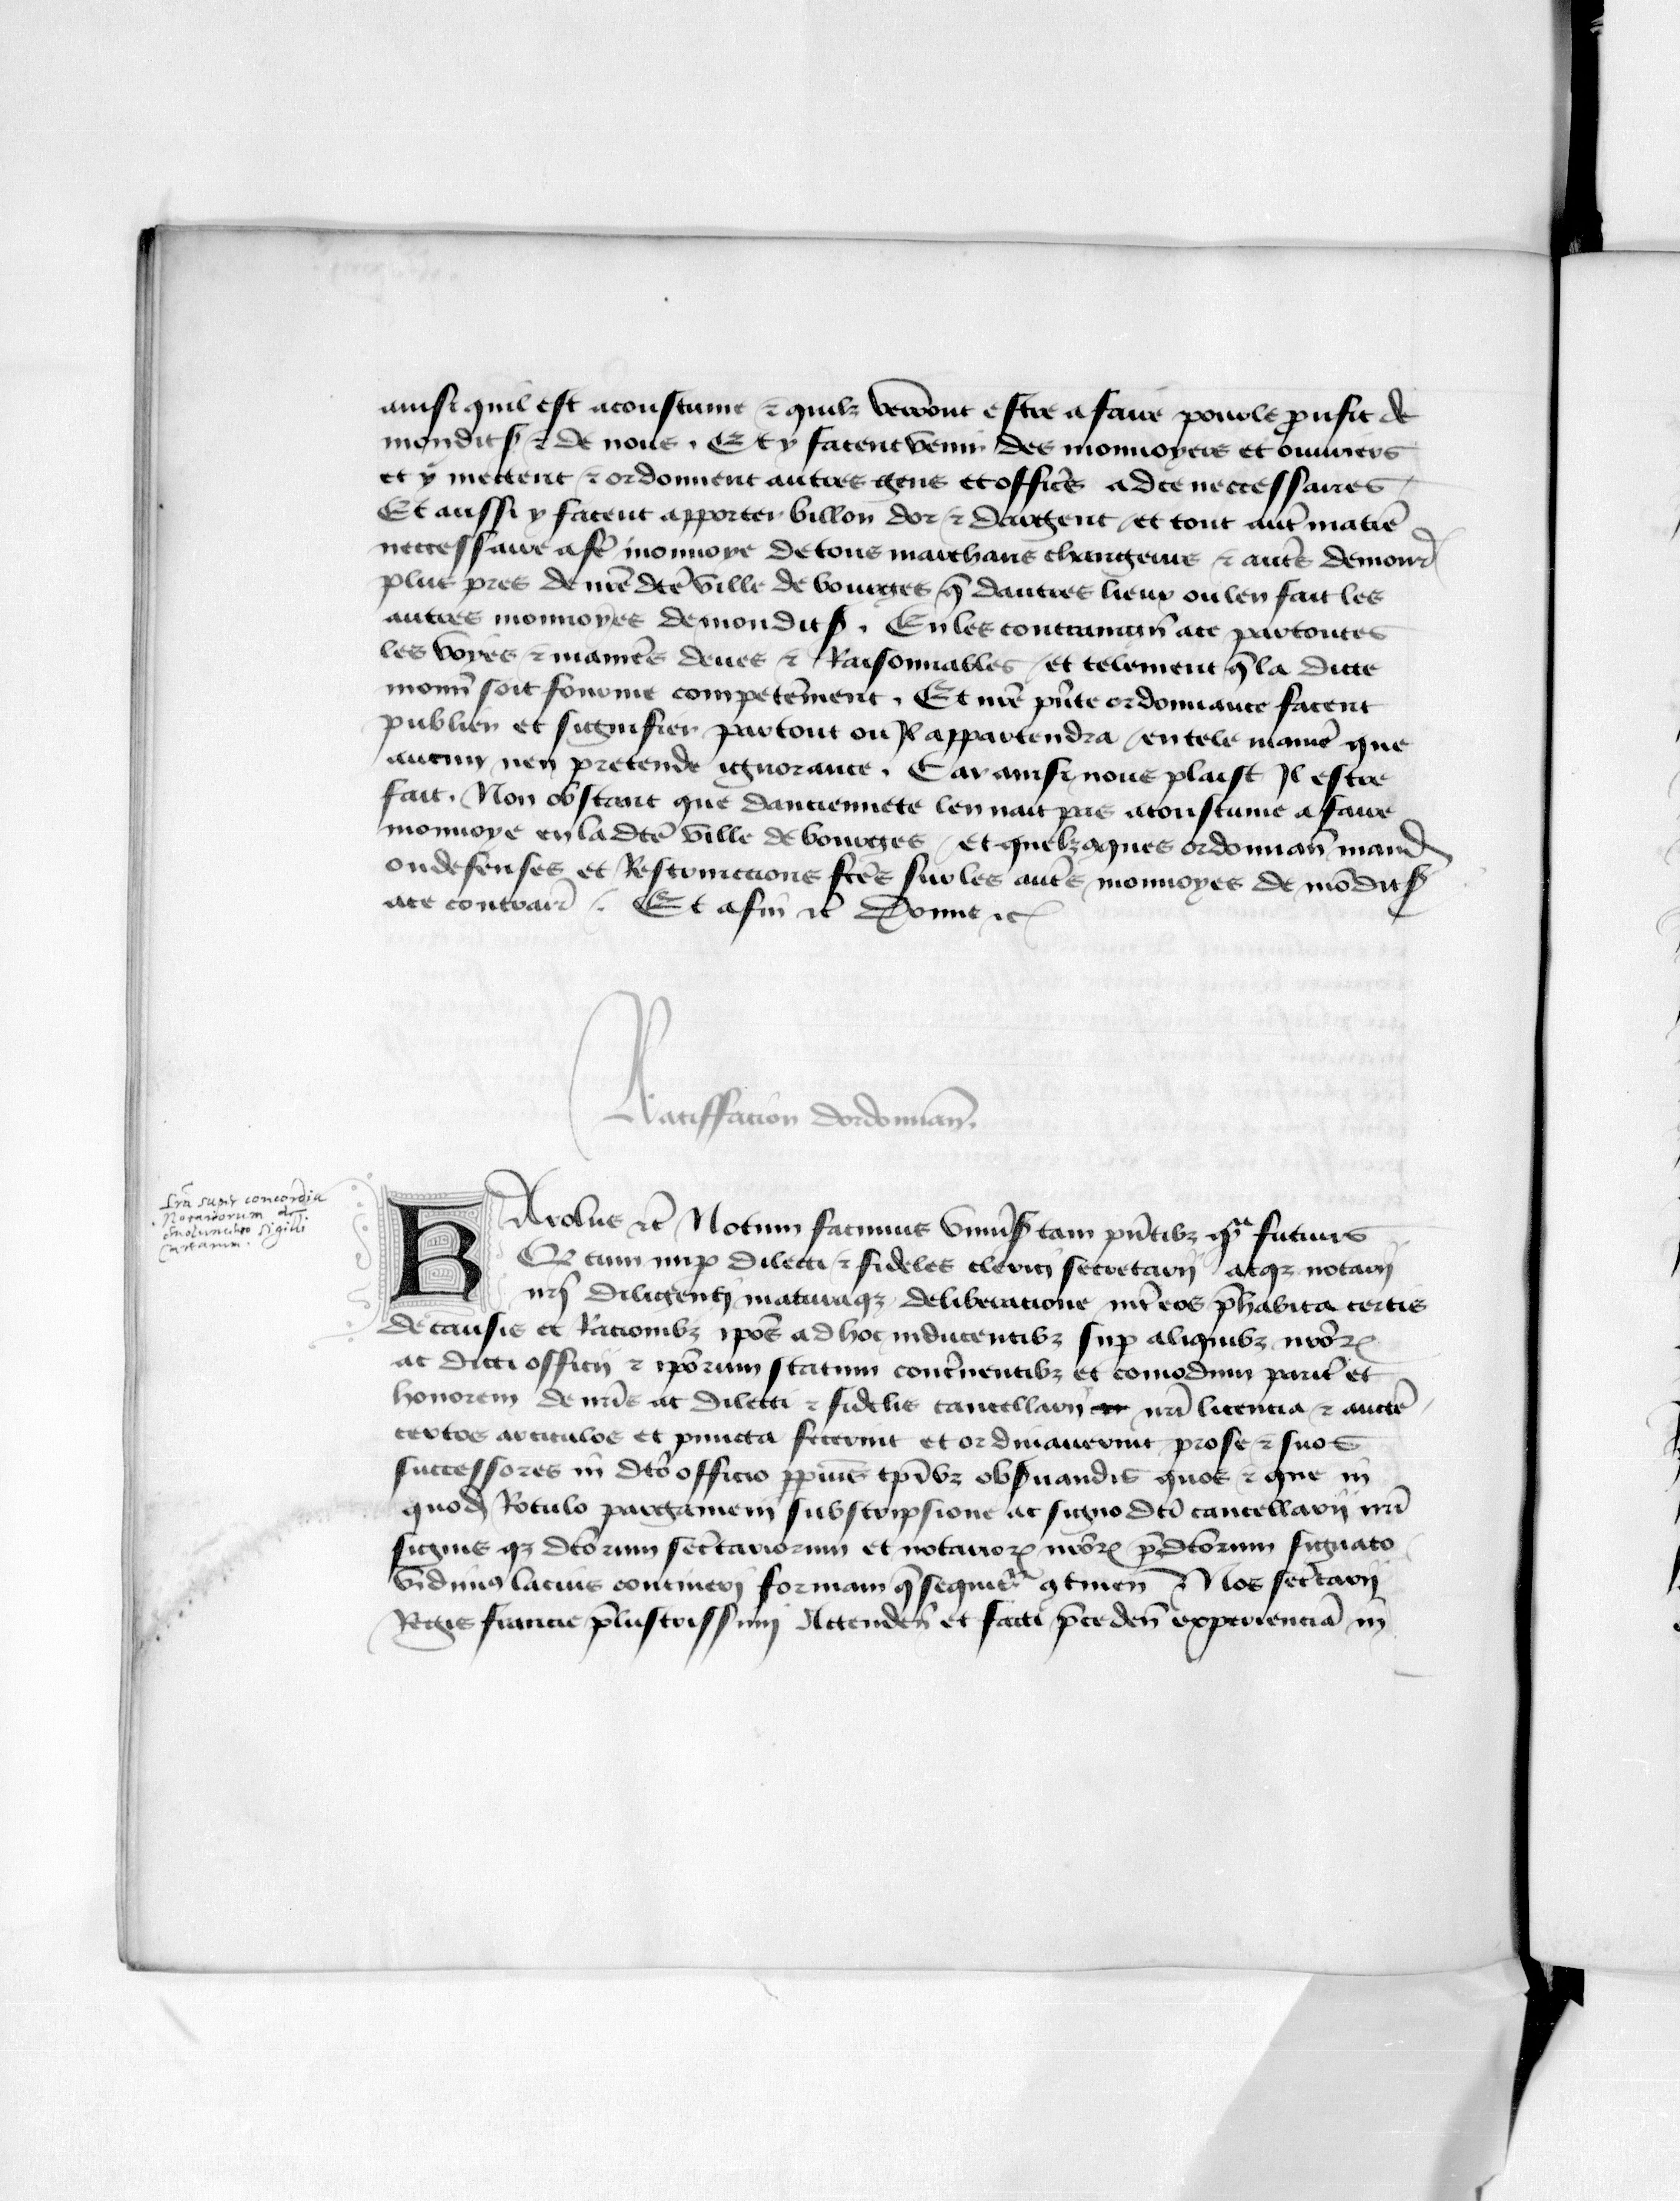 ainsi quil est acoustume ⁊ quilz verront estre a faire pour le prousfit de
mondit s̄ ⁊ de nous. Et y facent venir des monnoyers et ouuriers
et y mettent ⁊ ordonnent autres gens et offic̄s ad ce neccessaires
Et aussi y facent apporter billon dor ⁊ dargent / et tout aut̄ matiē
neccessaire a fē monnoye de tous marchans changeurs ⁊ aut̄s demour̄
plus pres de nr̄e dc̄e ville de bourges q̄ dautres lieux ou len fait les
autres monnoyes de mondit s̄. En les contraingn̄ a ce par toutes
les voyes ⁊ manier̄s deues ⁊ Raisonnables / et telement q̄ la ditte
monn̄ soit fournie compet̄ement. Et nr̄e pn̄te ordonnance facent
publier et signifier partout ou Jl appartendra / en tele manier̄ que
aucun nen pretende ignorance. Car ainsi nous plaist Jl estre
fait. Non obstant que danciennete len nait pas acoustume a faire
monnoye en la dc̄e ville de bourges / et quelzcqques ordonnan̄ mand̄
ou defenses et Restrinctions fc̄es sur les aut̄s monnoyes de mōdit s̄
a ce contrair̄. Et afin ⁊c̄ Donne ⁊c̄
Ratiffacion dordonnan̄.
lr̄a super concordia
Notariorum et
emolumento sigilli
cartarum.
KArolus ⁊c̄ Notum facimus vniu̅s̄ tam pn̄tibz qᵃ futuris
Q̄ cum nup̄ dilecti ⁊ fideles clerici secretarij atqz notarij
nr̄j diligentj maturaqz deliberatione int̄ eos p̄habita certis
de causis et Racionibz ip̄os ad hoc inducentibz sup̄ aliquibz nr̄oꝝ
ac dicti officij ⁊ ip̄orum statum conc̄nentibz et comodum parit̄ et
honorem de nr̄is ac dilecti ⁊ fidelis cancellarij nr̄i licencia ⁊ auctē
certos articulos et puncta fecerint et ordinauerint pro se ⁊ suos
successores in dc̄o officio p̄petuis tp̄ibz obs̄uandis quos ⁊ que in
quod̄ Rotulo pargamenj subscripsione ac signo dc̄i cancellarij nr̄i
signis qz dc̄orum sec̄tariorum et notarioꝝ nr̄oꝝ p̄dc̄orum signato
vidimꝰ lacius contineri formam q̄ sequit̄ ꝯtinen̄ Nos sec̄tarij
Regis francie p̄lustrissimj Attenden̄ et facti p̄ceden̄ experienciā in